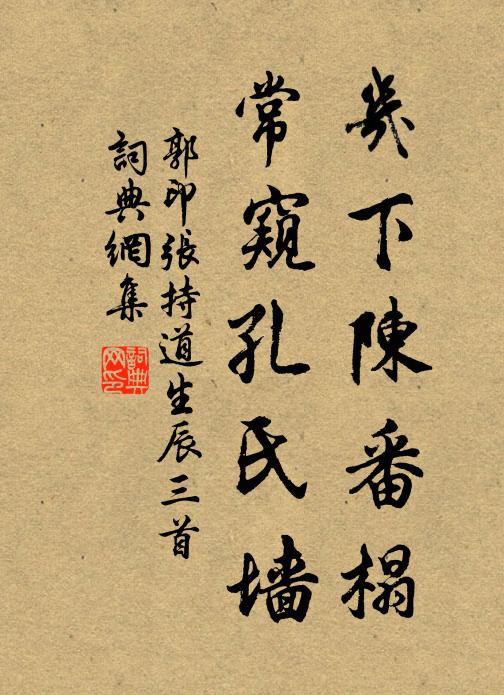 幾下陳番榻
常窺孔氏墙
郭印張持道生辰三首
詞典網集
詞典网印